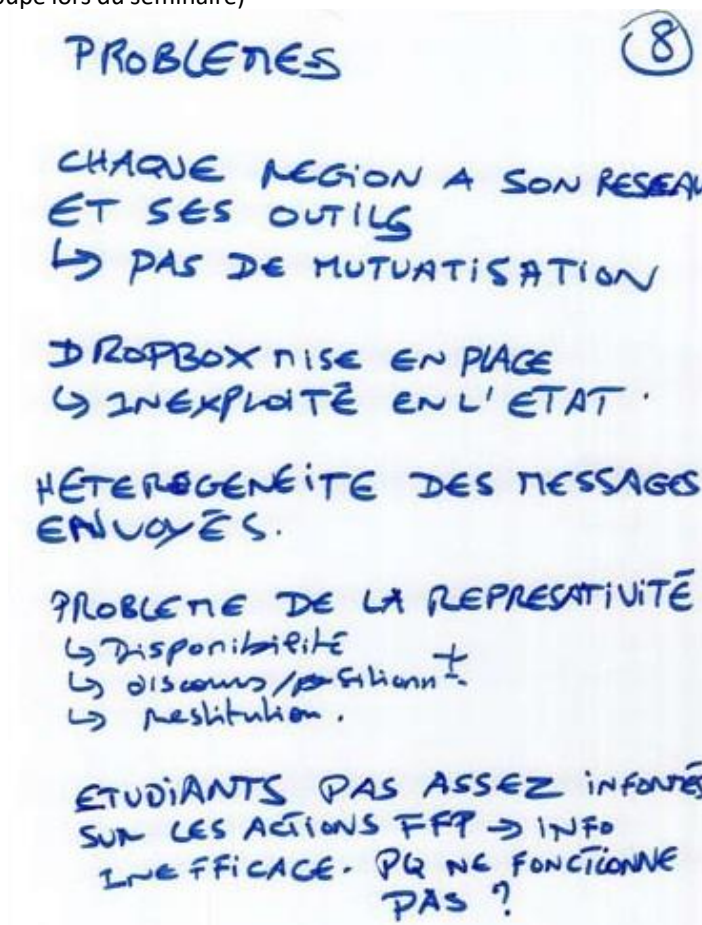 oupe lors du séminaire)
PROBLEMES
8
CHAQUE REGION A SON RESEAU
ET SES OUTILS
↳ PAS DE MUTUATISATION
DROPBOX MISE EN PLACE
↳ INEXPLOITÉ EN L'ETAT.
HETEROGENEITE DES MESSAGES
ENVOYÉS.
PROBLEME DE LA REPRESATIVITÉ
↳ Disponibilité
↳ discours/positionnt
↳ restitution.
ETUDIANTS PAS ASSEZ INFORMÉS
SUR LES ACTIONS FFP → INFO
INEFFICACE. PQ NE FONCTIONNE
PAS ?